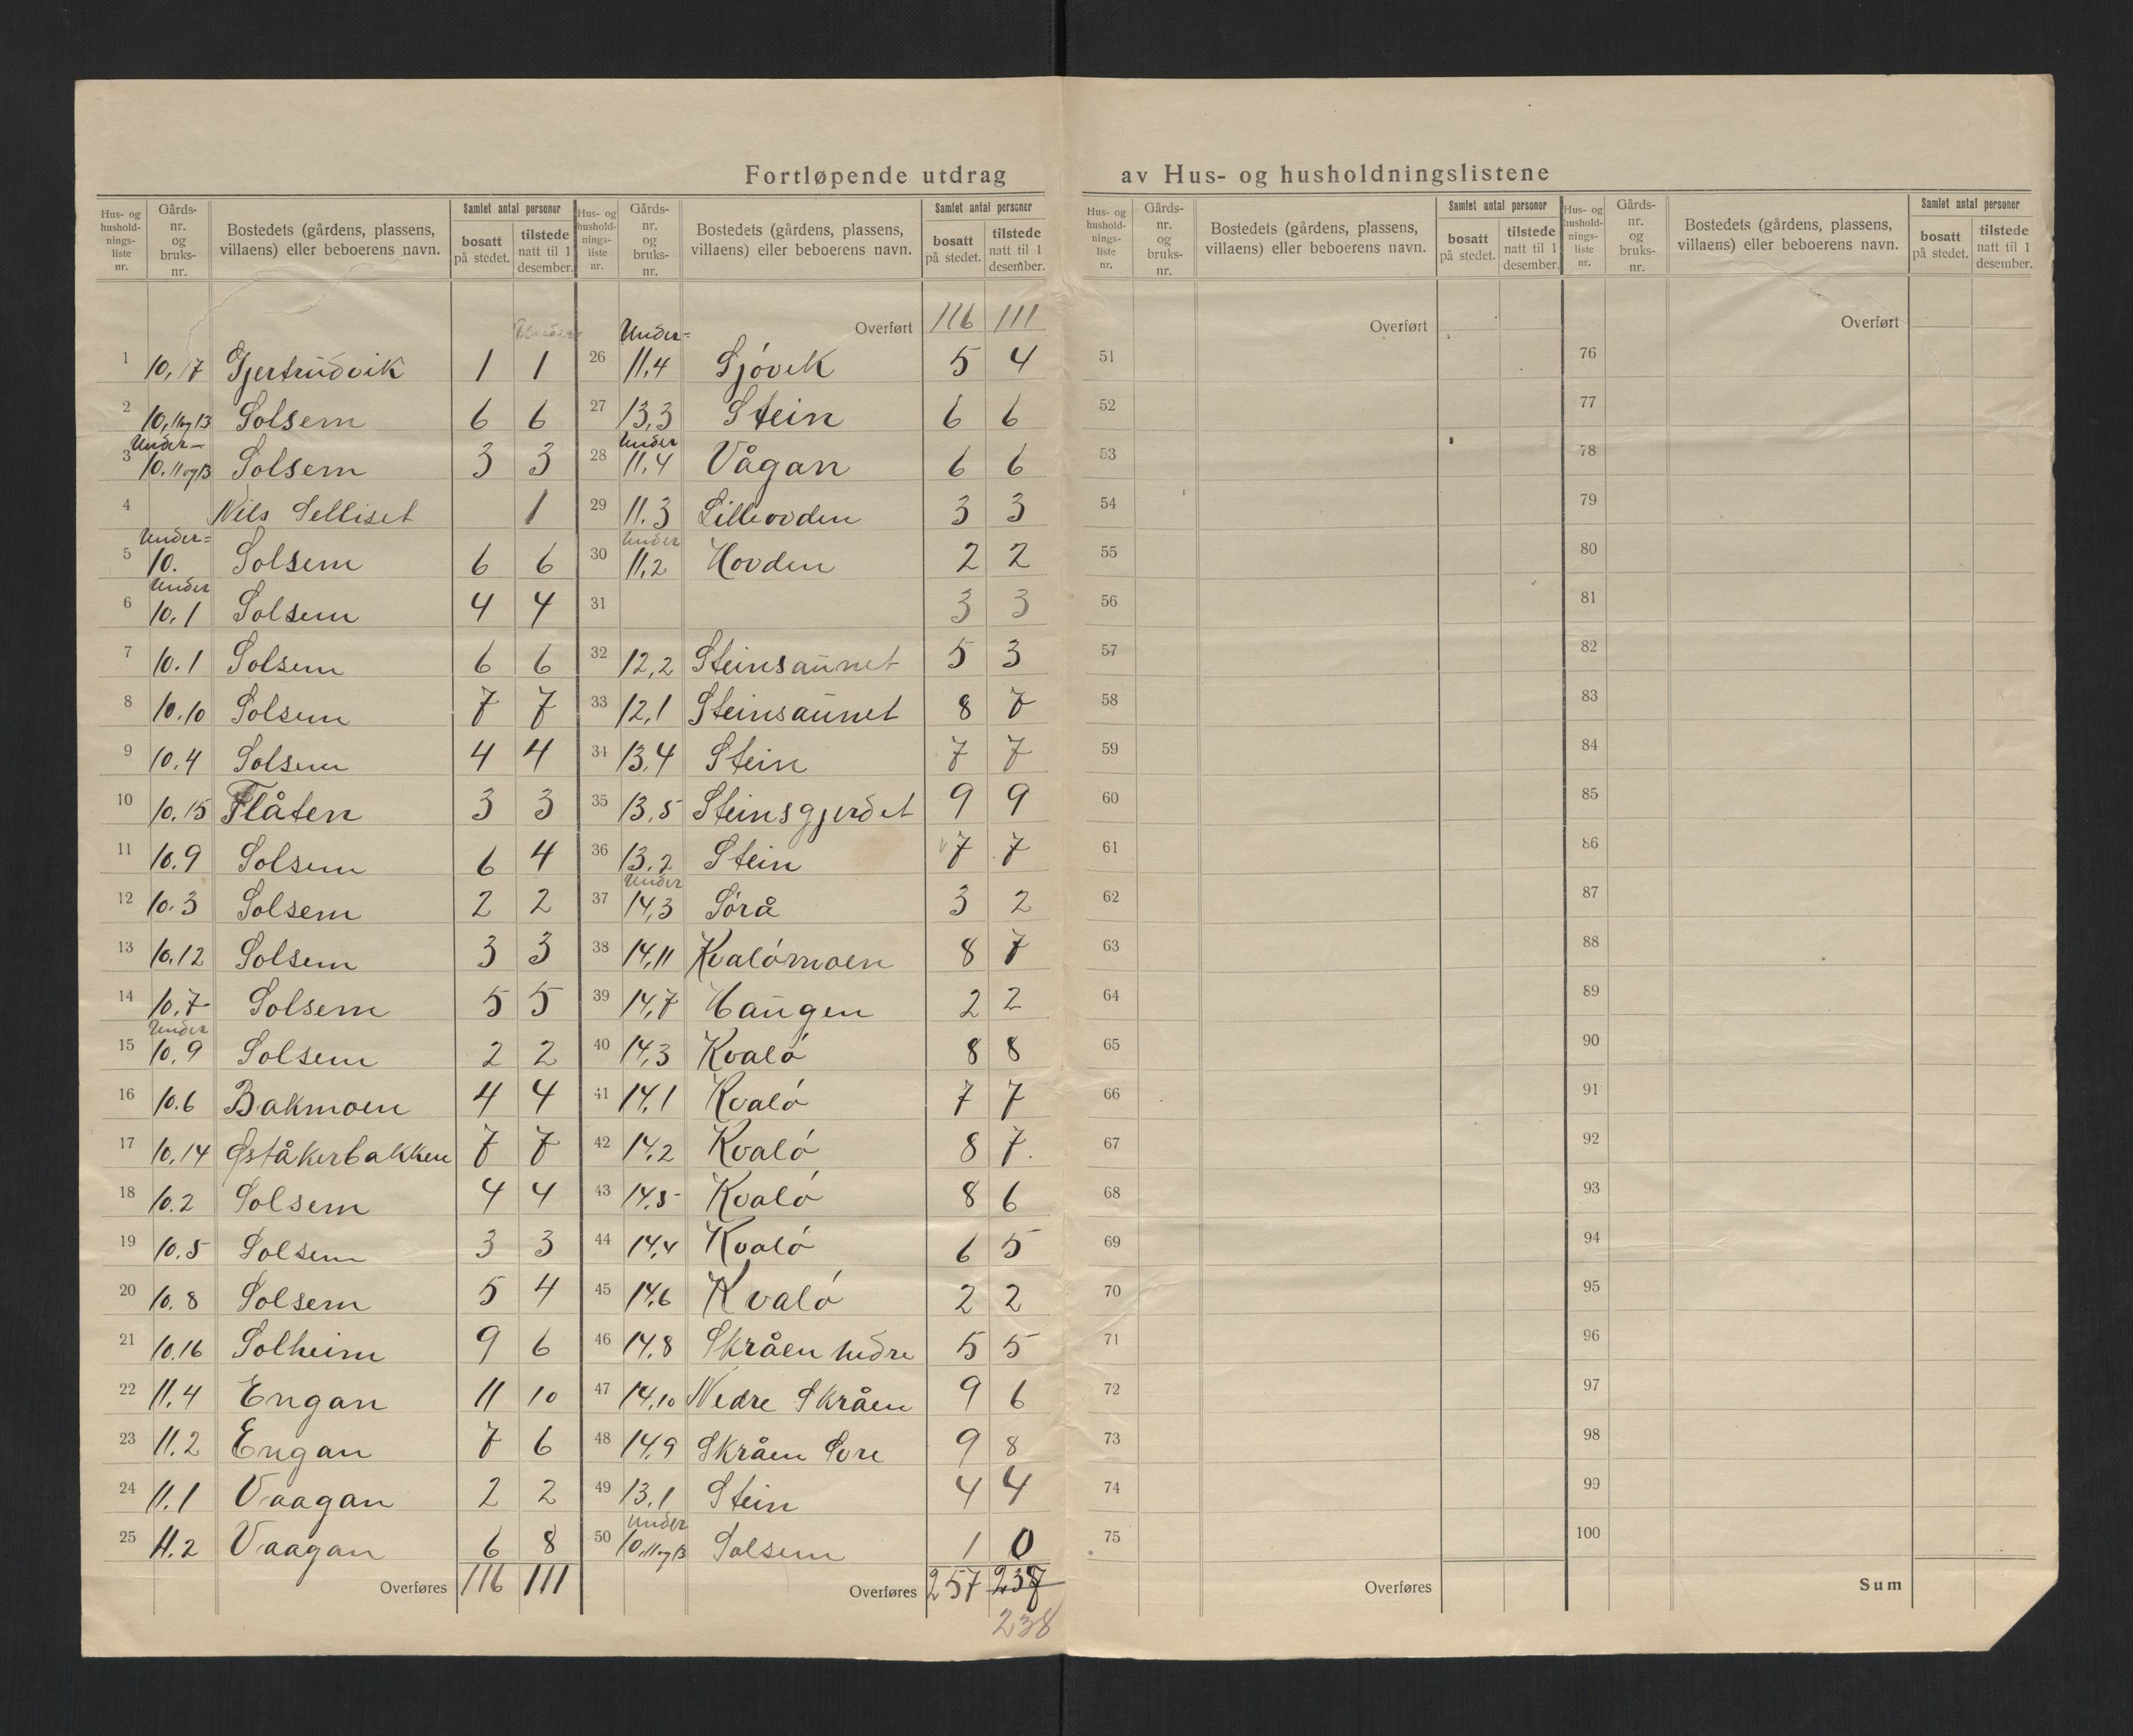 Fortløpende utdrag av Hus- og husholdningslistene
Hus- og husholdnings-liste nr. | Gårds-nr. og bruks-nr. | Bostedets (gårdens, plassens, villaens) eller beboerens navn. | Samlet antal personer | bosatt på stedet. | tilstede natt til 1 desember.
1 10,17 Gjertrudvik 1 1
2 10,11og13 Solsem 6 6
3 Under- 10.11og13 Solsem 3 3
4 Nils Selliset 1
5 Under= 10. Solsem 6 6
6 Under 10,1 Solsem 4 4
7 10.1 Solsem 6 6
8 10.10 Solsem 7 7
9 10.4 Solsem 4 4
10 10.15 Flåten 3 3
11 10.9 Solsem 6 4
12 10.3 Solsem 2 2
13 10.12 Solsem 3 3
14 10.7 Solsem 5 5
15 Under 10.9 Solsem 2 2
16 10.6 Bakmoen 4 4
17 10.14 Øståkerbakken 7 7
18 10.2 Solsem 4 4
19 10.5 Solsem 3 3
20 10.8 Solsem 5 4
21 10.16 Solheim 9 6
22 11.4 Engan 11 10
23 11.2 Engan 7 6
24 11.1 Vaagan 2 2
25 11.2 Vaagan 6 8
Overføres 116 111
Hus- og husholdnings-liste nr. | Gårds-nr. og bruks-nr. | Bostedets (gårdens, plassens, villaens) eller beboerens navn. | Samlet antal personer | bosatt på stedet. | tilstede natt til 1 desember.
Overført 116 111
26 Under= 11,4 Sjóvik 5 4
27 13,3 Stein 6 6
28 Under 11,4 Vågan 6 6
29 11.3 Lilleovden 3 3
30 Under 11,2 Hovden 2 2
31 3 3
32 12,2 Steinsaunet 5 3
33 12,1 Steinsaunet 8 7
34 13,4 Stein 7 7
35 13,5 Steinsgjerdet 9 9
36 13.2 Stein 7 7
37 Under 14,3 Sórå 3 2
38 14,11 Kvalómoen 8 7
39 14,7 Haugen 2 2
40 14,3 Kvaló 8 8
41 14,1 Kvaló 7 7
42 14.2 Kvaló 8 7
43 14.5 Kvaló 8 6
44 14,4 Kvaló 6 5
45 14.6 Kvaló 2 2
46 14.8 Skråen nedre 5 5
47 14,10 Nedre Skråen 9 6
48 14.9 Skråen Óvre 9 8
49 13,1 Stein 4 4
50 Under 10,11og13 Solsem 1 0
Overføres 257 237
238
Hus- og husholdnings-liste nr. | Gårds-nr. og bruks-nr. | Bostedets (gårdens, plassens, villaens) eller beboerens navn. | Samlet antal personer | bosatt på stedet. | tilstede natt til 1 desember.
Overført
51
52
53
54
55
56
57
58
59
60
61
62
63
64
65
66
67
68
69
70
71
72
73
74
75
Overføres
Hus- og husholdnings-liste nr. | Gårds-nr. og bruks-nr. | Bostedets (gårdens, plassens, villaens) eller beboerens navn. | Samlet antal personer | bosatt på stedet. | tilstede natt til 1 desember.
Overført
76
77
78
79
80
81
82
83
84
85
86
87
88
89
90
91
92
93
94
95
96
97
98
99
100
Sum